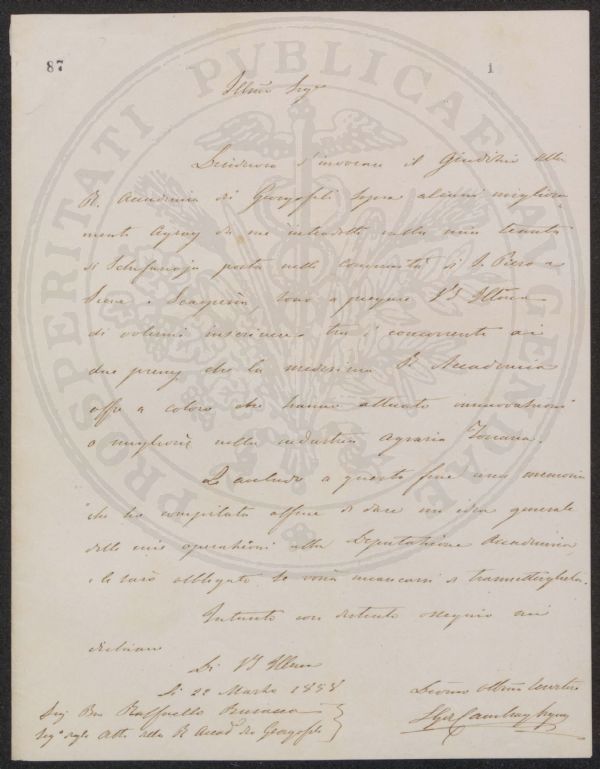 87
1
PROSPERITATI PVBLICAE AVGENDAE
Illmo Sigre
Desideroso d'invocare il Giudizio della
R. Accademia dei Georgofili sopra alcuni migliora
menti agrarj da me introdotti nella mia tenuta
di Schifanoja posta nelle comunità di S. Piero a
Sieve e Scarperia, sono a pregare VS Illma
di volermi inscrivere tra i concorrenti ai
due premj che la medesima R. Accademia
offre a coloro che hanno attuato innovazioni
o migliorie nella industria agraria Toscana.
Le accludo a questo fine una memoria
che ho compilata affine di dare un idea generale
delle mie operazioni alla Deputazione Accademica
e le sarò obbligato se vorrà incaricarsi di trasmettergliela.
Intanto con distinto ossequio mi
dichiaro
Di VS Illma
Li 22 Marzo 1858
Sig Bne Raffaello
Segro degli Atti della R Accad dei Georgofili